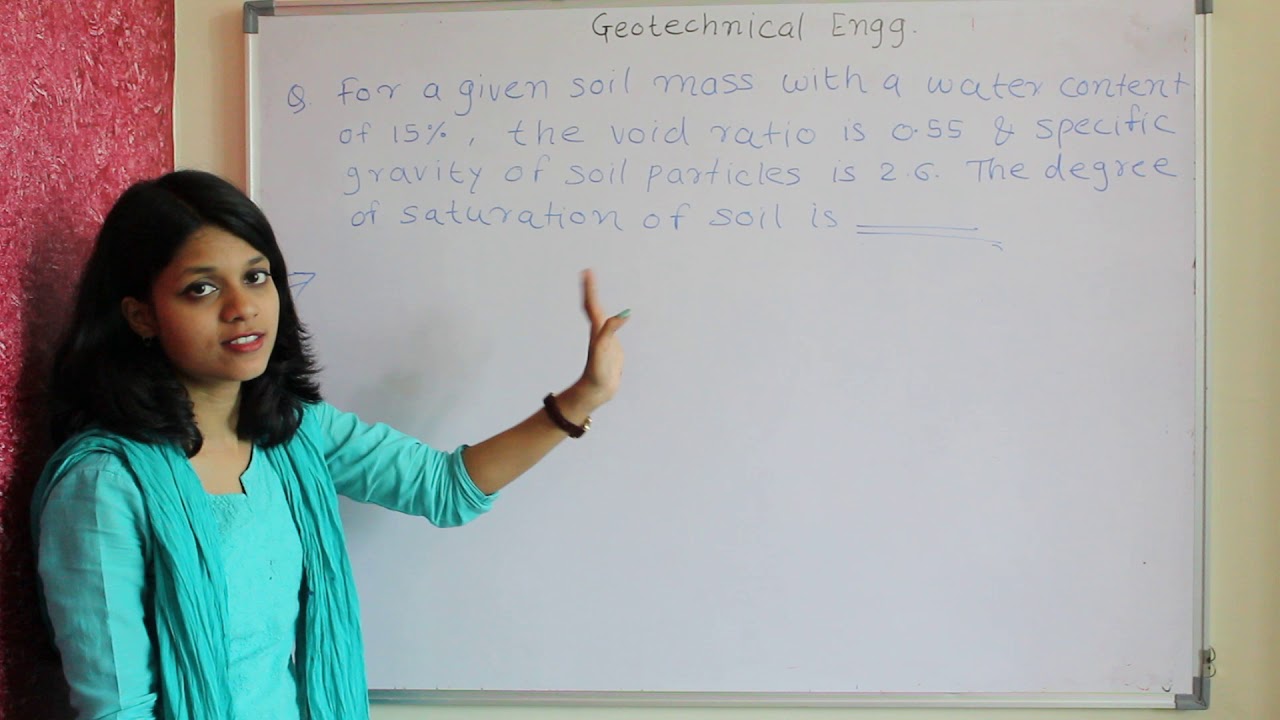 Geotechnical Engg.
Q. For a given soil mass with a water content
of 15%, the void ratio is 0.55 & specific
gravity of soil particles is 2.6. The degree
of saturation of soil is